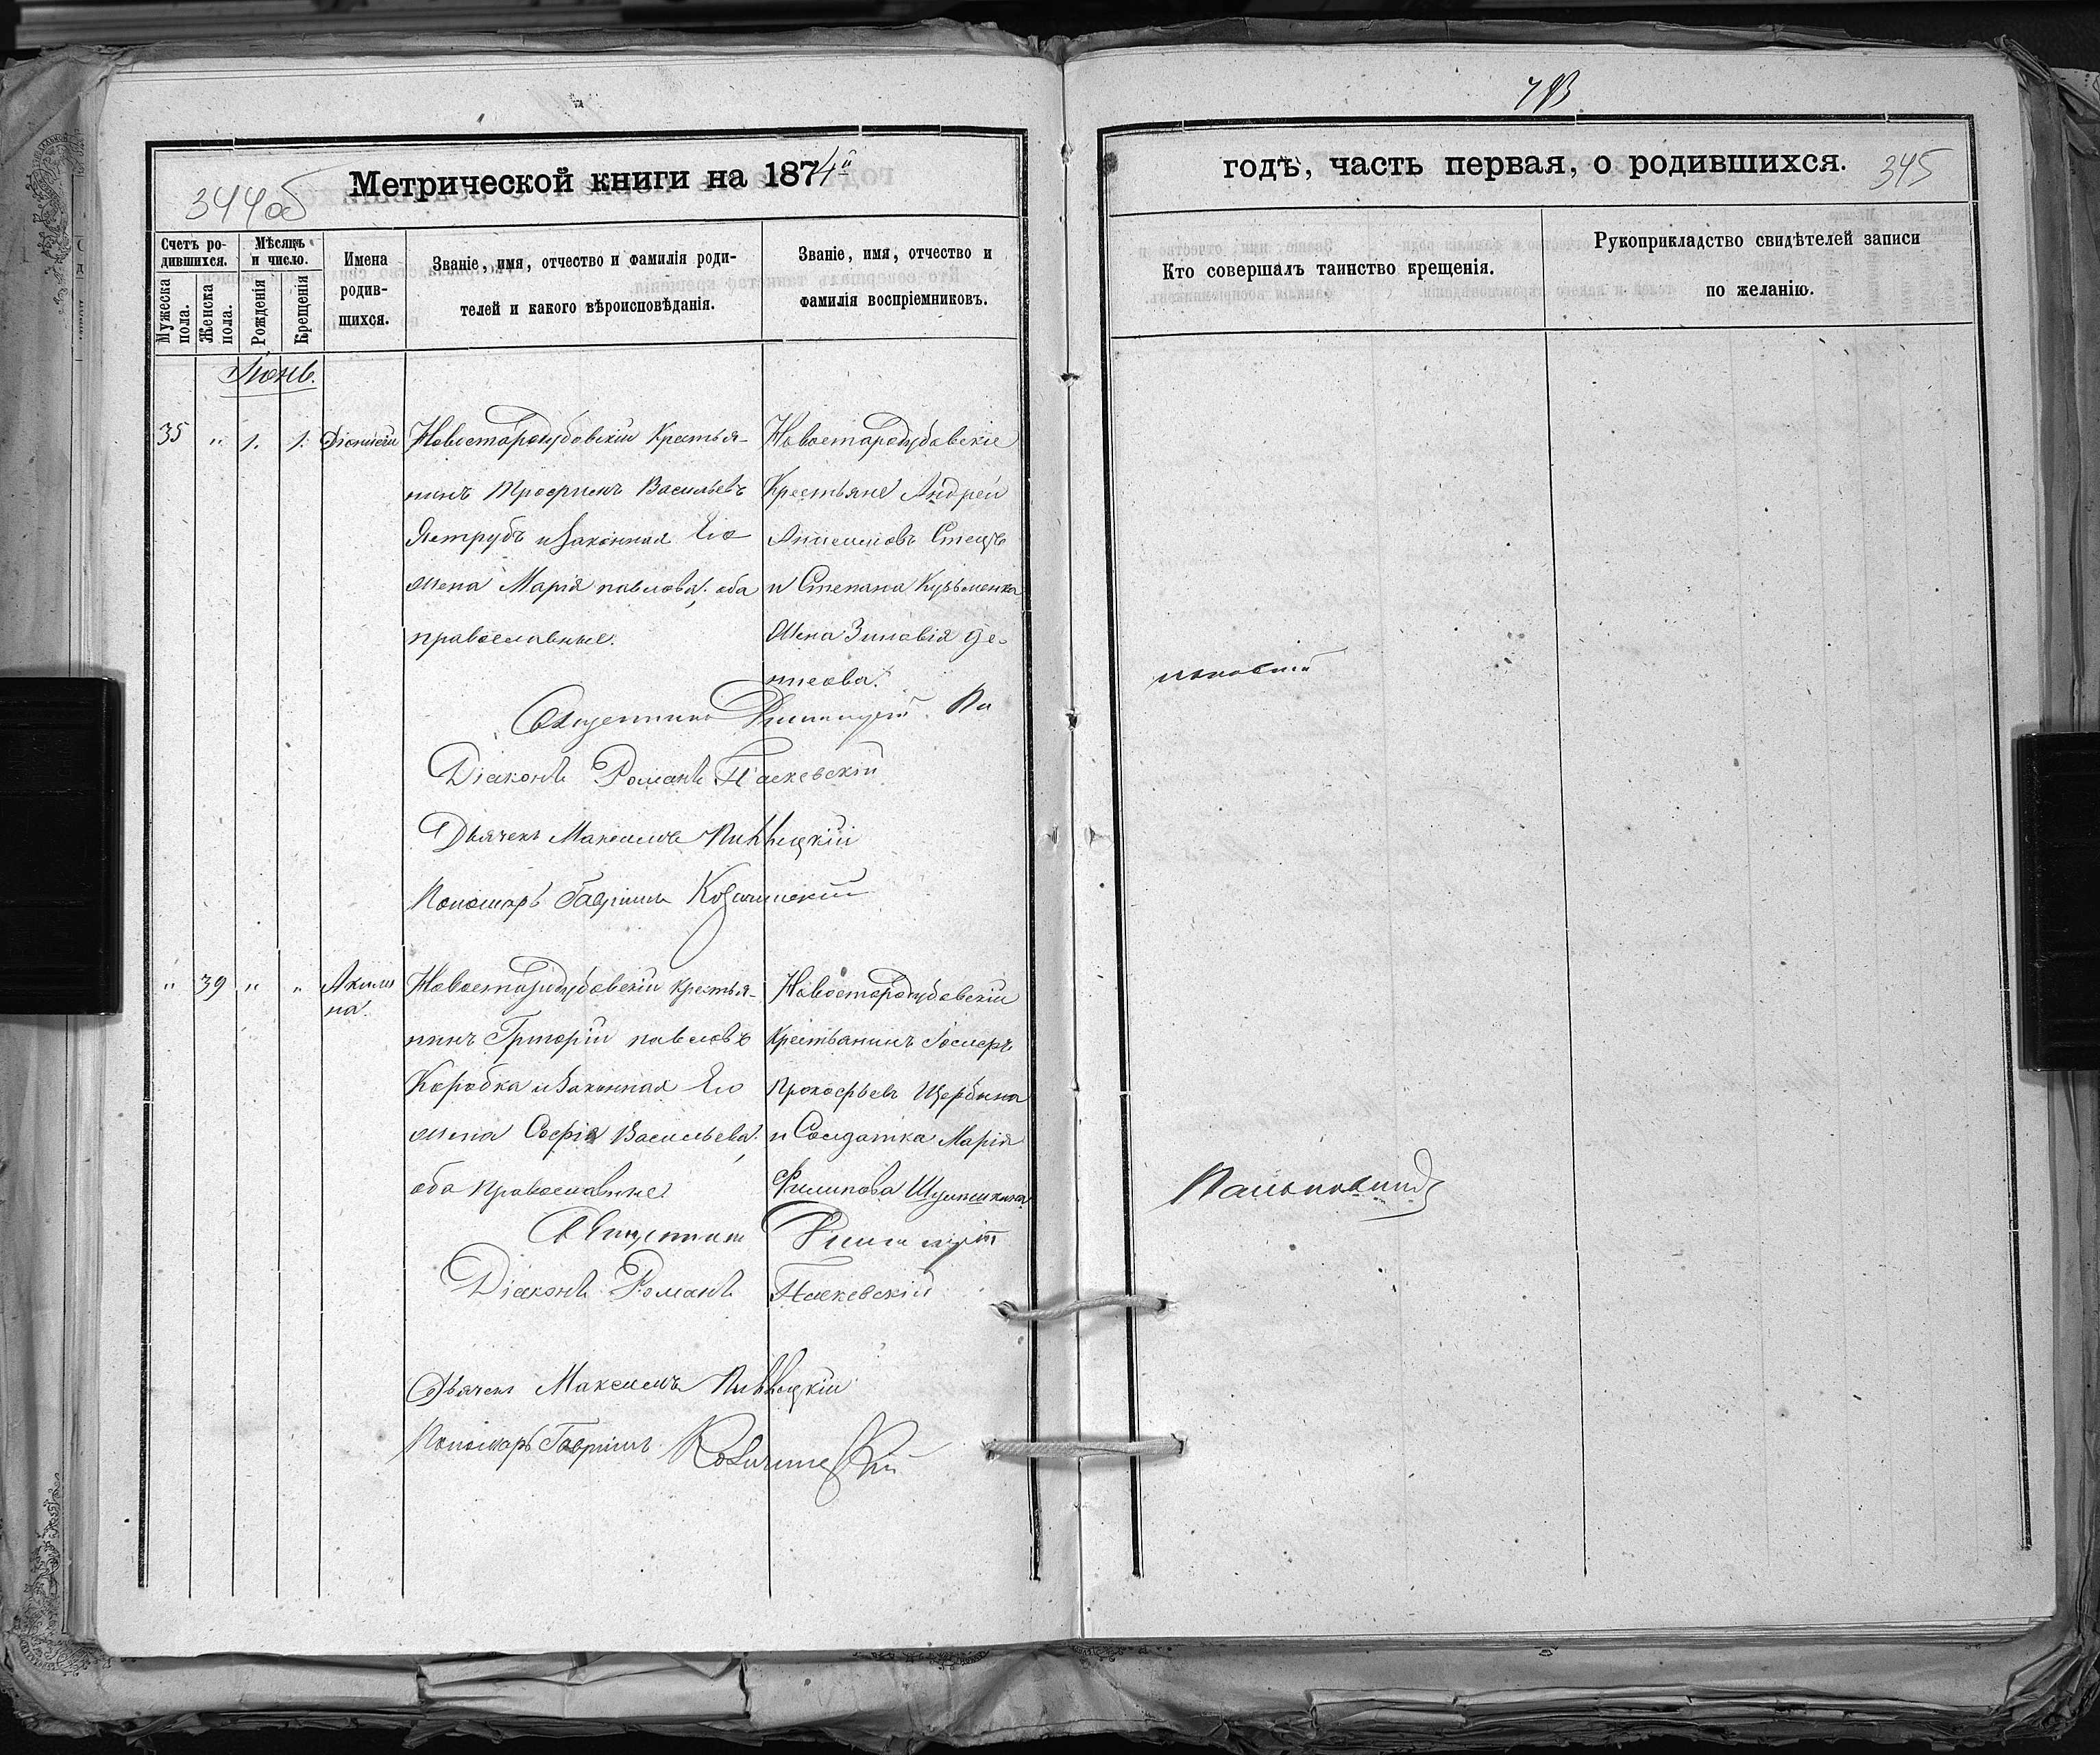 Метрической книги на 1874й
344об
Счетъ ро-
дившихся.
Мужеска
пола.
Женска
пола.
Мѣсяцъ
и число.
Рожденія
Крещенія
Имена
родив-
шихся.
Званіе, имя, отчество и фамилія роди-
телей и какого вѣроисповѣданія.
Званіе, имя, отчество и
фамилія воспріемниковъ.
Іюнь.
35 „ 1. 1. Діонисій
Новостародубовскій Крестья-
нинъ Трофимъ Васильевъ
Яструбъ и законная Его
жена Марія павлова; оба
православные.
Новостародубовскіе
Крестьяне Андрей
Стець
и Степана Кузьменка
жена Зиновія
Священникъ Димитрій
Діаконъ Романъ Паскевскій
Дьячекъ Максимъ
Пономарь Гавріилъ
„ 39 „ „ Акили
на.
Новостародубовскій Крестья-
нинъ Григорій павловъ
Коробка и законная Его
жена Софія Васильева;
оба православные.
Новостародубовскій
Крестьянинъ
Прокофьевъ Щербина
и Солдатка Марія
Филипова
Священникъ Димитрій
Діаконъ Романъ Паскевскій
Дьячекъ Максимъ
Пономарь Гавріилъ
годъ, часть первая, о родившихся.
345
Кто совершалъ таинство крещенія.
Рукоприкладство свидѣтелей записи
по желанію.